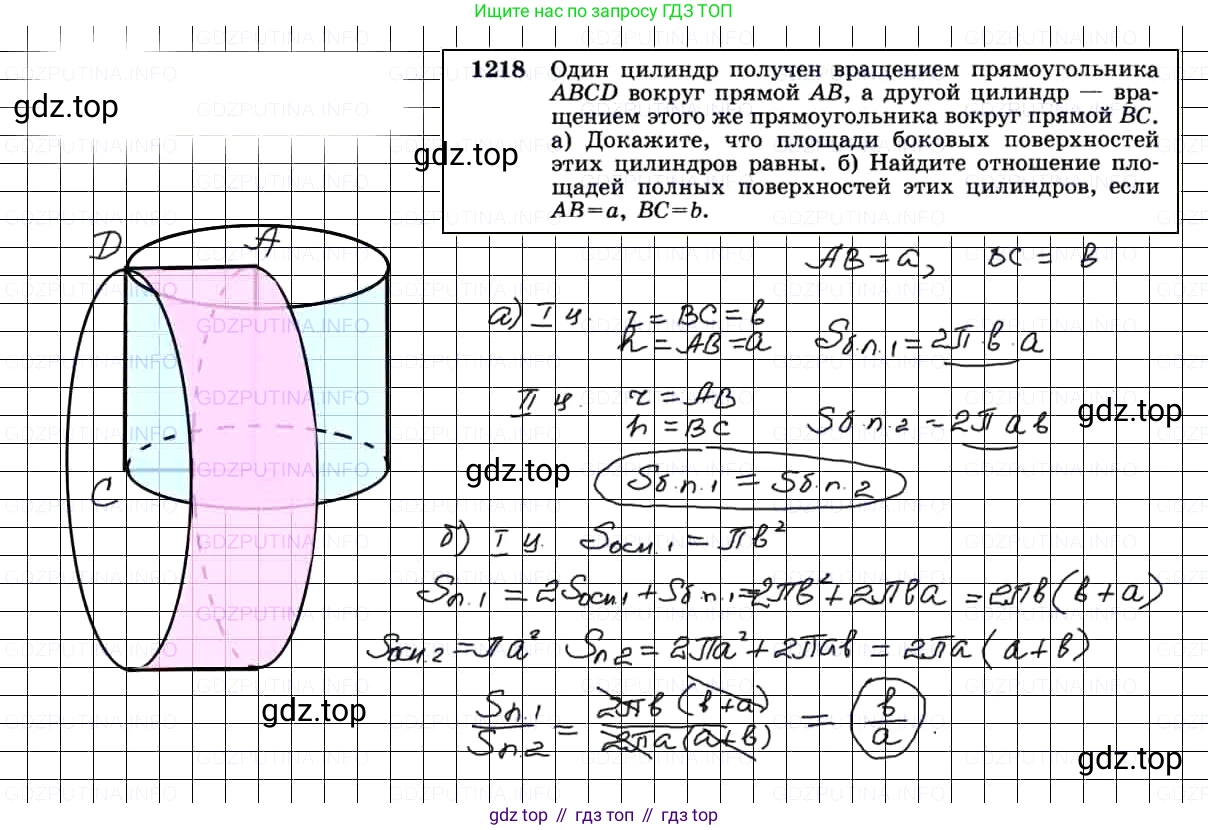 Ищите нас по запросу ГДЗ ТОП
1218 Один цилиндр получен вращением прямоугольника
ABCD вокруг прямой AB, а другой цилиндр — вра-
щением этого же прямоугольника вокруг прямой BC.
а) Докажите, что площади боковых поверхностей
этих цилиндров равны. б) Найдите отношение пло-
щадей полных поверхностей этих цилиндров, если
AB=a, BC=b.
gdz.top
gdz.top
D A
C
AB = a, BC = в
а) I ц. r = BC = в
h = AB = a Sб.п.1 = 2π·в·a
II ц. r = AB
h = BC Sб.п.2 = 2π a в
gdz.top
gdz.top
Sб.п.1 = Sб.п.2
б) I ц. Sосн.1 = πв²
Sп.1 = 2Sосн.1 + Sб.п.1 = 2πв² + 2πвa = 2πв(в+a)
Sосн.2 = πa² Sп2 = 2πa² + 2πaв = 2πa(a+в)
Sп.1/Sп.2 = 2πв(в+a)/2πa(a+в) = в/a.
gdz.top
gdz.top
gdz топ // гдз топ // гдз top
GDZPUTINA.INFO